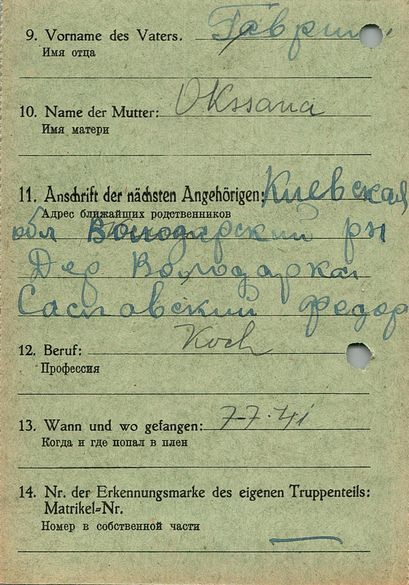 9. Vorname des Vaters. Гаврил
Имя отца
10. Name der Mutter: Okssana
Имя матери
11. Anschrift der nächsten Angehörigen: Киевская
Адрес ближайших родственников
обл Володарский рн
Дер Володарка
Саславский Федор
12. Beruf: Koch
Профессия
13. Wann und wo gefangen: 7-7-41
Когда и где попал в плен
14. Nr. der Erkennungsmarke des eigenen Truppenteils:
Matrikel-Nr.
Номер в собственной части